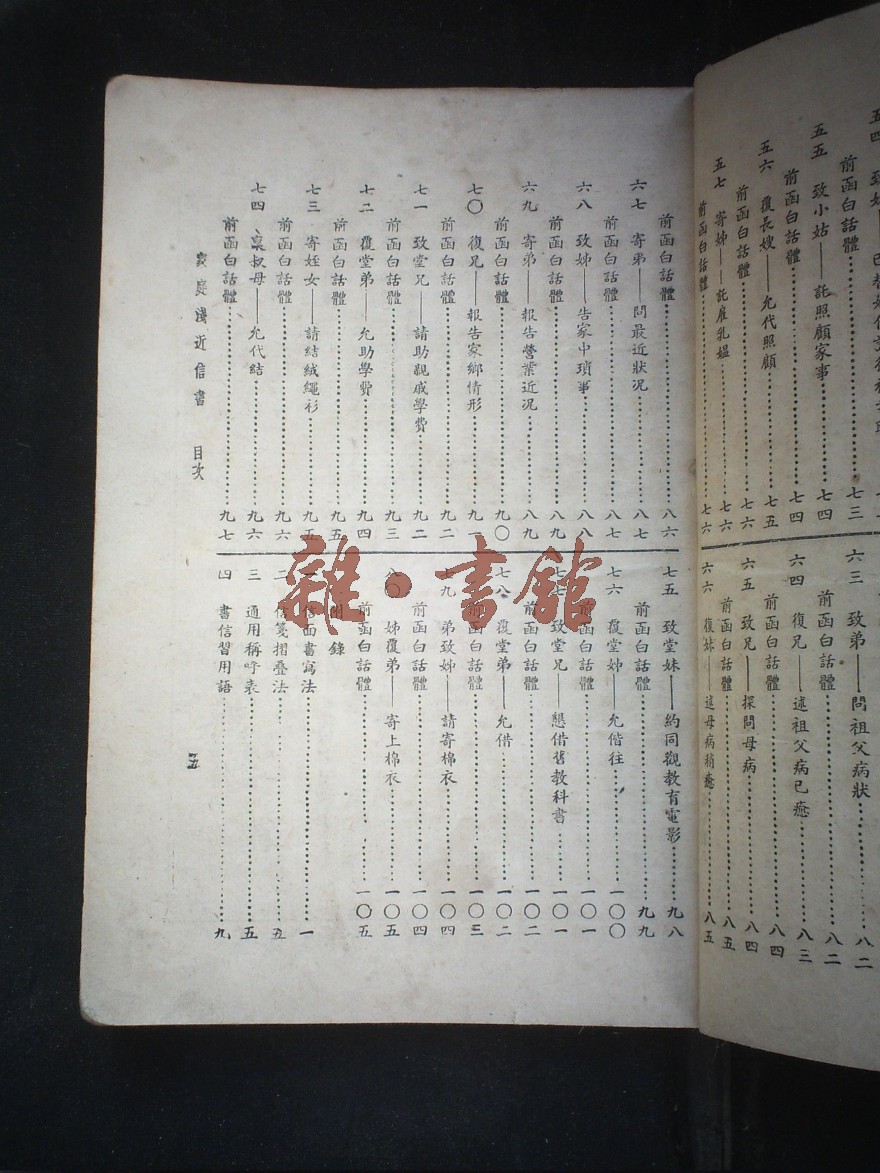 五五 致小姑——託照顧家事……七四
前函白話體……七四
五六 覆長嫂——允代照顧……七五
前函白話體……七六
五七 寄姊——託雇乳媼……七六
前函白話體……七六
六三 致弟——問祖父病狀……八二
前函白話體……八二
六四 復兄——述祖父病已癒……八三
前函白話體……八四
六五 致兄——探問母病……八四
前函白話體……八五
六六 復妹——述母病稍癒……八五
前函白話體……八六
六七 寄弟——問最近狀況……八七
前函白話體……八七
六八 致姊——告家中瑣事……八八
前函白話體……八九
六九 寄弟——報告營業近況……八九
前函白話體……九〇
七〇 復兄——報告家鄉情形……九一
前函白話體……九二
七一 致堂兄——請助親戚學費……九二
前函白話體……九三
七二 覆堂弟——允助學費……九四
前函白話體……九五
七三 寄姪女——請結絨繩衫……九五
前函白話體……九六
七四 稟叔母——允代結……九六
前函白話體……九七
七五 致堂妹——約同觀教育電影……九八
前函白話體……九九
七六 覆堂姊——允偕往……一〇〇
前函白話體……一〇一
七七 致堂兄——懇借舊教科書……一〇一
前函白話體……一〇二
七八 覆堂弟——允借……一〇二
前函白話體……一〇三
七九 弟致姊——請寄棉衣……一〇四
前函白話體……一〇四
八〇 姊覆弟——寄上棉衣……一〇五
前函白話體……一〇五
附錄
一 信面書寫法……一
二 信箋摺疊法……五
三 通用稱呼表……五
四 書信習用語……九
家庭淺近信書 目次
五
雜·書館